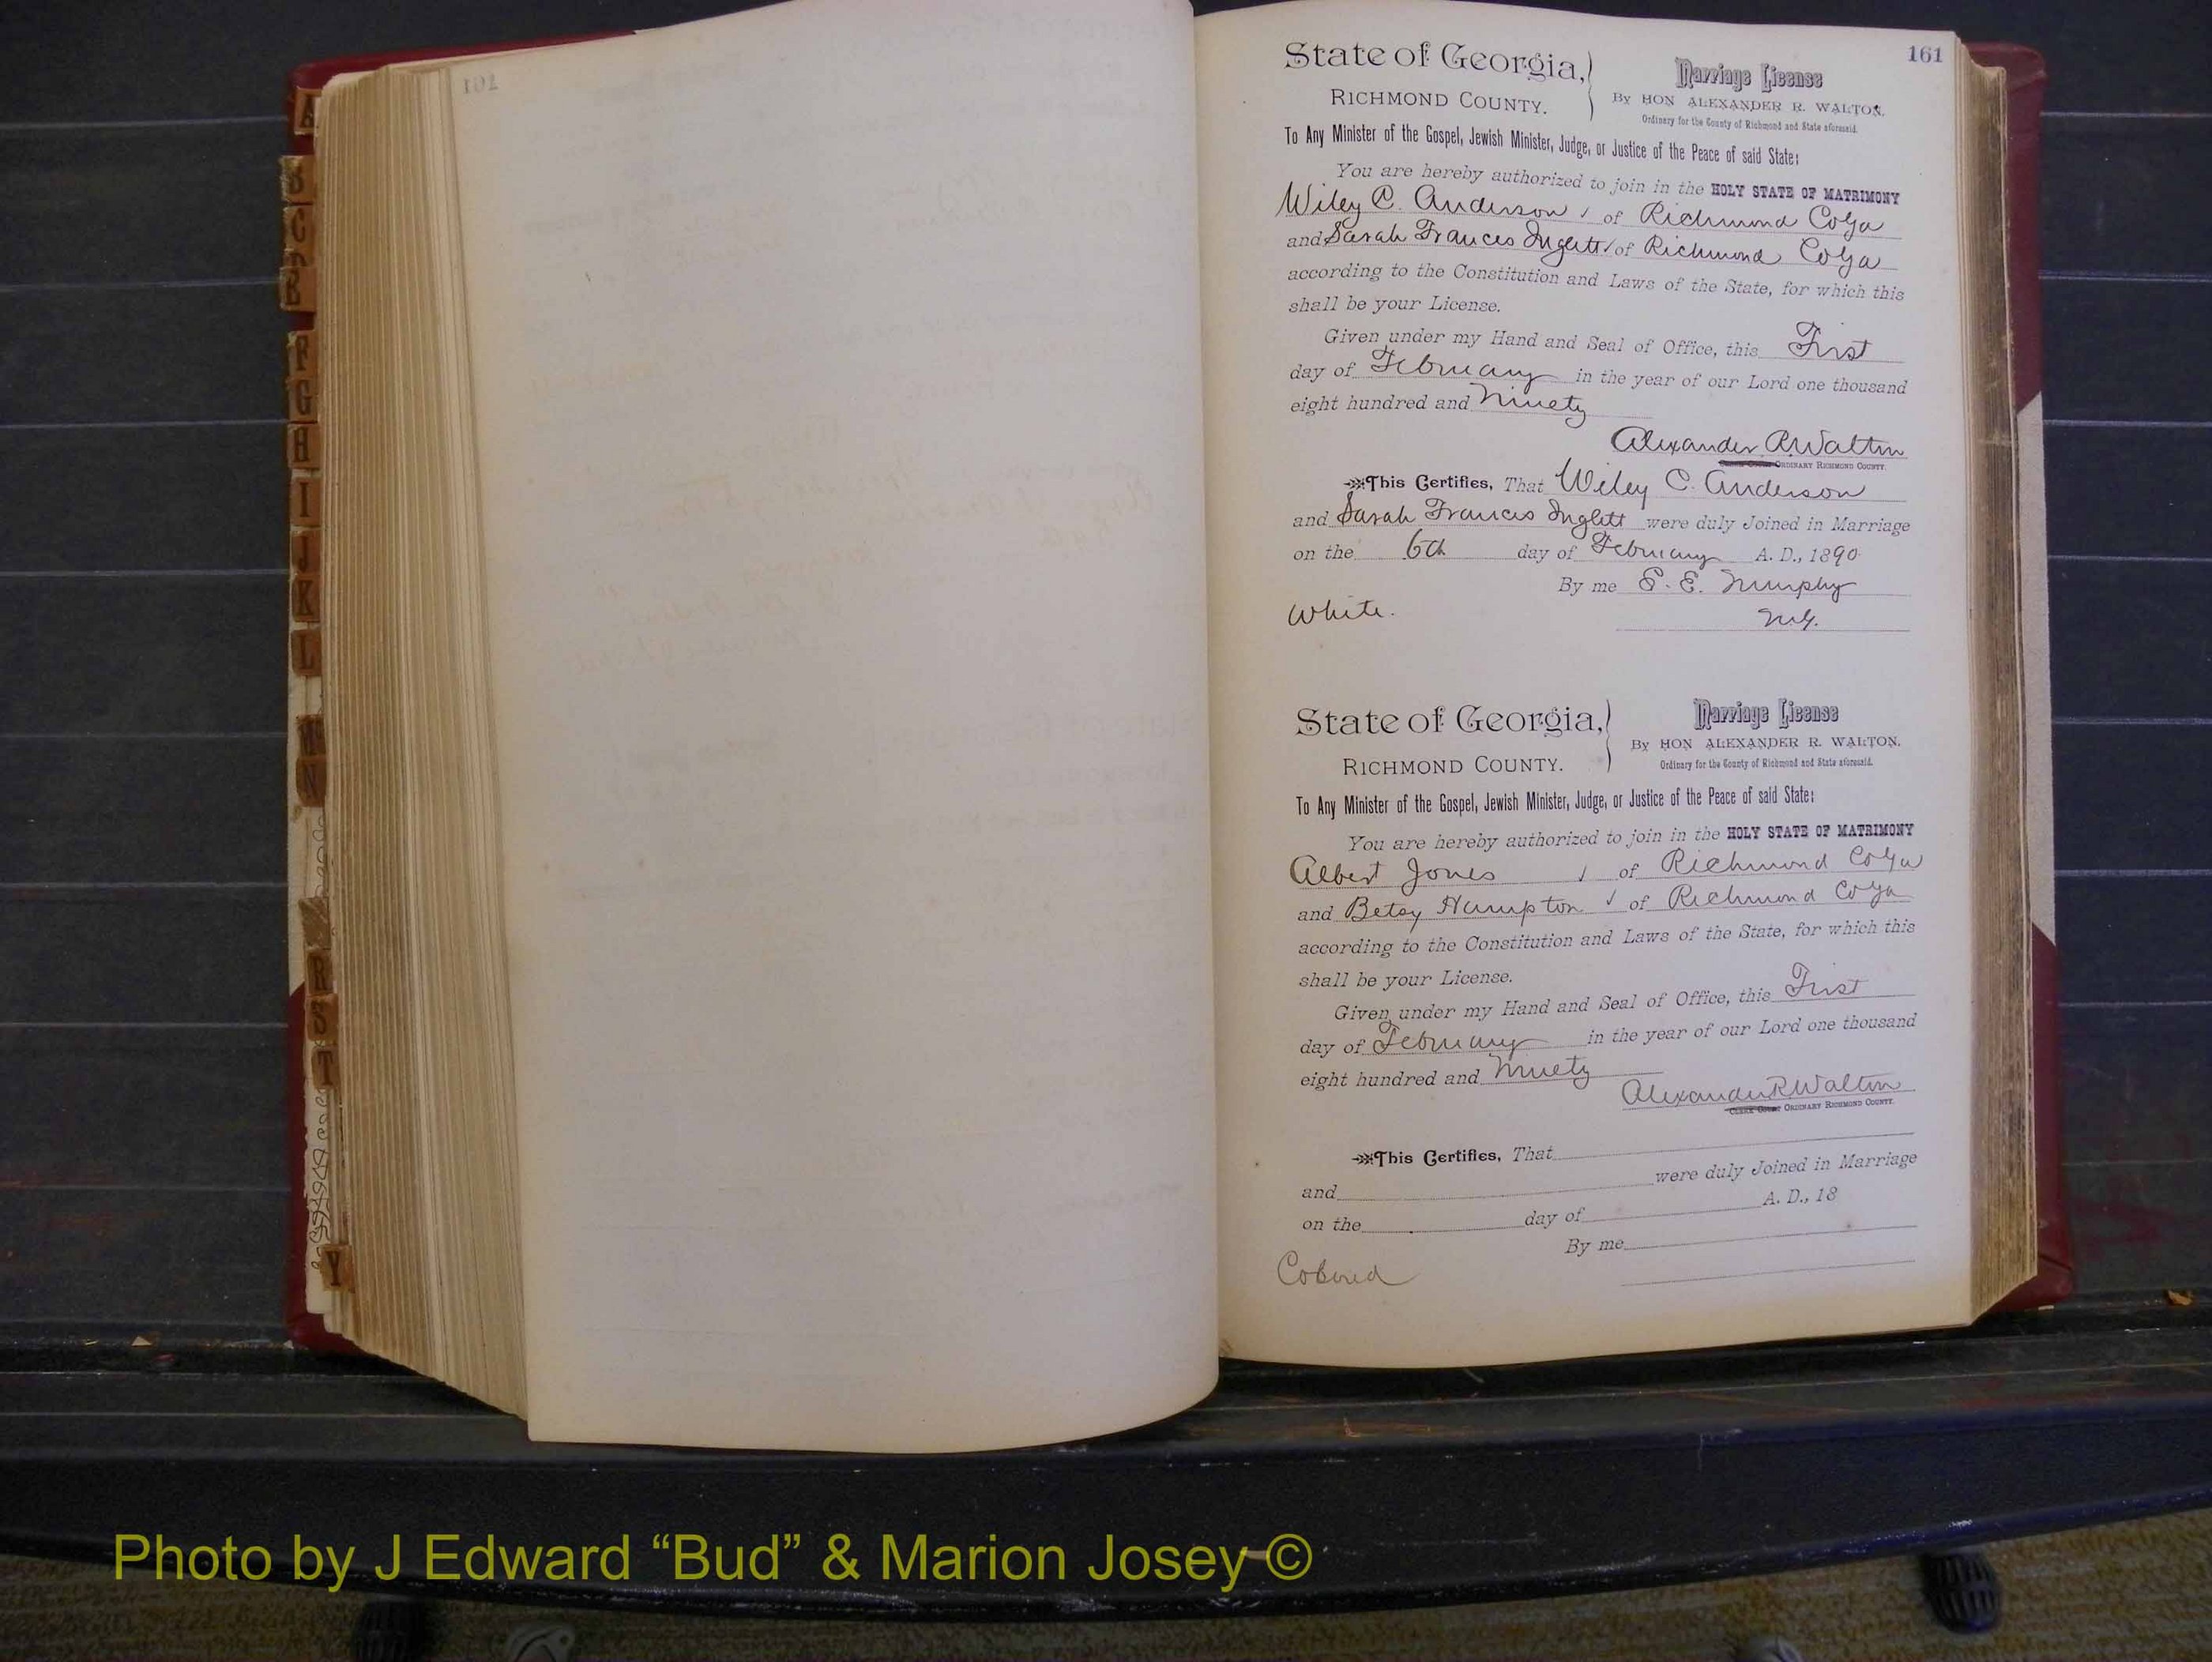 161
State of Georgia,
RICHMOND COUNTY.
Marriage License
By HON ALEXANDER R. WALTON,
Ordinary for the County of Richmond and State aforesaid.
To Any Minister of the Gospel, Jewish Minister, Judge, or Justice of the Peace of said State:
You are hereby authorized to join in the HOLY STATE OF MATRIMONY
Wiley C. Anderson of Richmond Co Ga
and Sarah Frances Inglett of Richmond Co Ga
according to the Constitution and Laws of the State, for which this
shall be your License.
Given under my Hand and Seal of Office, this First
day of February in the year of our Lord one thousand
eight hundred and Ninety
Alexander R. Walton
ORDINARY RICHMOND COUNTY.
This Certifies, That Wiley C. Anderson
and Sarah Frances Inglett were duly Joined in Marriage
on the 6th day of February A. D., 1890
By me E. E. Murphy
White. M.G.
State of Georgia,
RICHMOND COUNTY.
Marriage License
By HON ALEXANDER R. WALTON.
Ordinary for the County of Richmond and State aforesaid.
To Any Minister of the Gospel, Jewish Minister, Judge, or Justice of the Peace of said State:
You are hereby authorized to join in the HOLY STATE OF MATRIMONY
Albert Jones of Richmond Co Ga
and Betsy Hampton of Richmond Co Ga
according to the Constitution and Laws of the State, for which this
shall be your License.
Given under my Hand and Seal of Office, this First
day of February in the year of our Lord one thousand
eight hundred and Ninety
Alexander R. Walton
CLERK COURT ORDINARY RICHMOND COUNTY.
This Certifies, That
and were duly Joined in Marriage
on the day of A. D., 18
By me
Colored
B
C
F
G
H
I
J
K
L
N
R
S
T
Y
Photo by J Edward “Bud” & Marion Josey ©